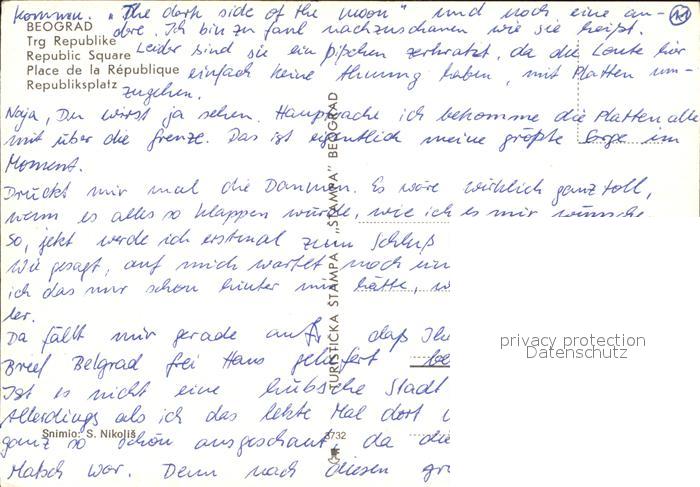 kommen. "The dark side of the moon" und noch eine an-
dre. Ich bin zu faul nachzuschauen wie sie heißt.
Leider sind sie ein bißchen zerkratzt, da die Leute hier
einfach keine Ahnung haben, mit Platten um-
zugehen.
11
BEOGRAD
Trg Republike
Republic Square
Place de la République
Republiksplatz
Naja, Du wirst ja sehen. Hauptsache ich bekomme die Platten alle
mit über die Grenze. Das ist eigentlich meine größte Sorge im
Moment.
Drückt mir mal die Daumen. Es wäre wirklich ganz toll,
wenn es alles so klappen würde, wie ich es mir wünsche
So, jetzt werde ich erstmal zum Schluß
Wie gesagt, auf mich wartet noch ein
ich das nur schon hinter mir hätte, w
ter.
Da fällt mir gerade auf, daß Ihr
Brief Belgrad frei Haus geliefert be
Ist es nicht eine hübsche Stadt
Allerdings als ich das letzte Mal dort
ganz so schön ausgeschaut, da die
Matsch war. Denn nach diesen gr
TURISTICKA STAMPA "STAMPA" BEOGRAD
Snimio: S. Nikoliš
3732
privacy protection
Datenschutz